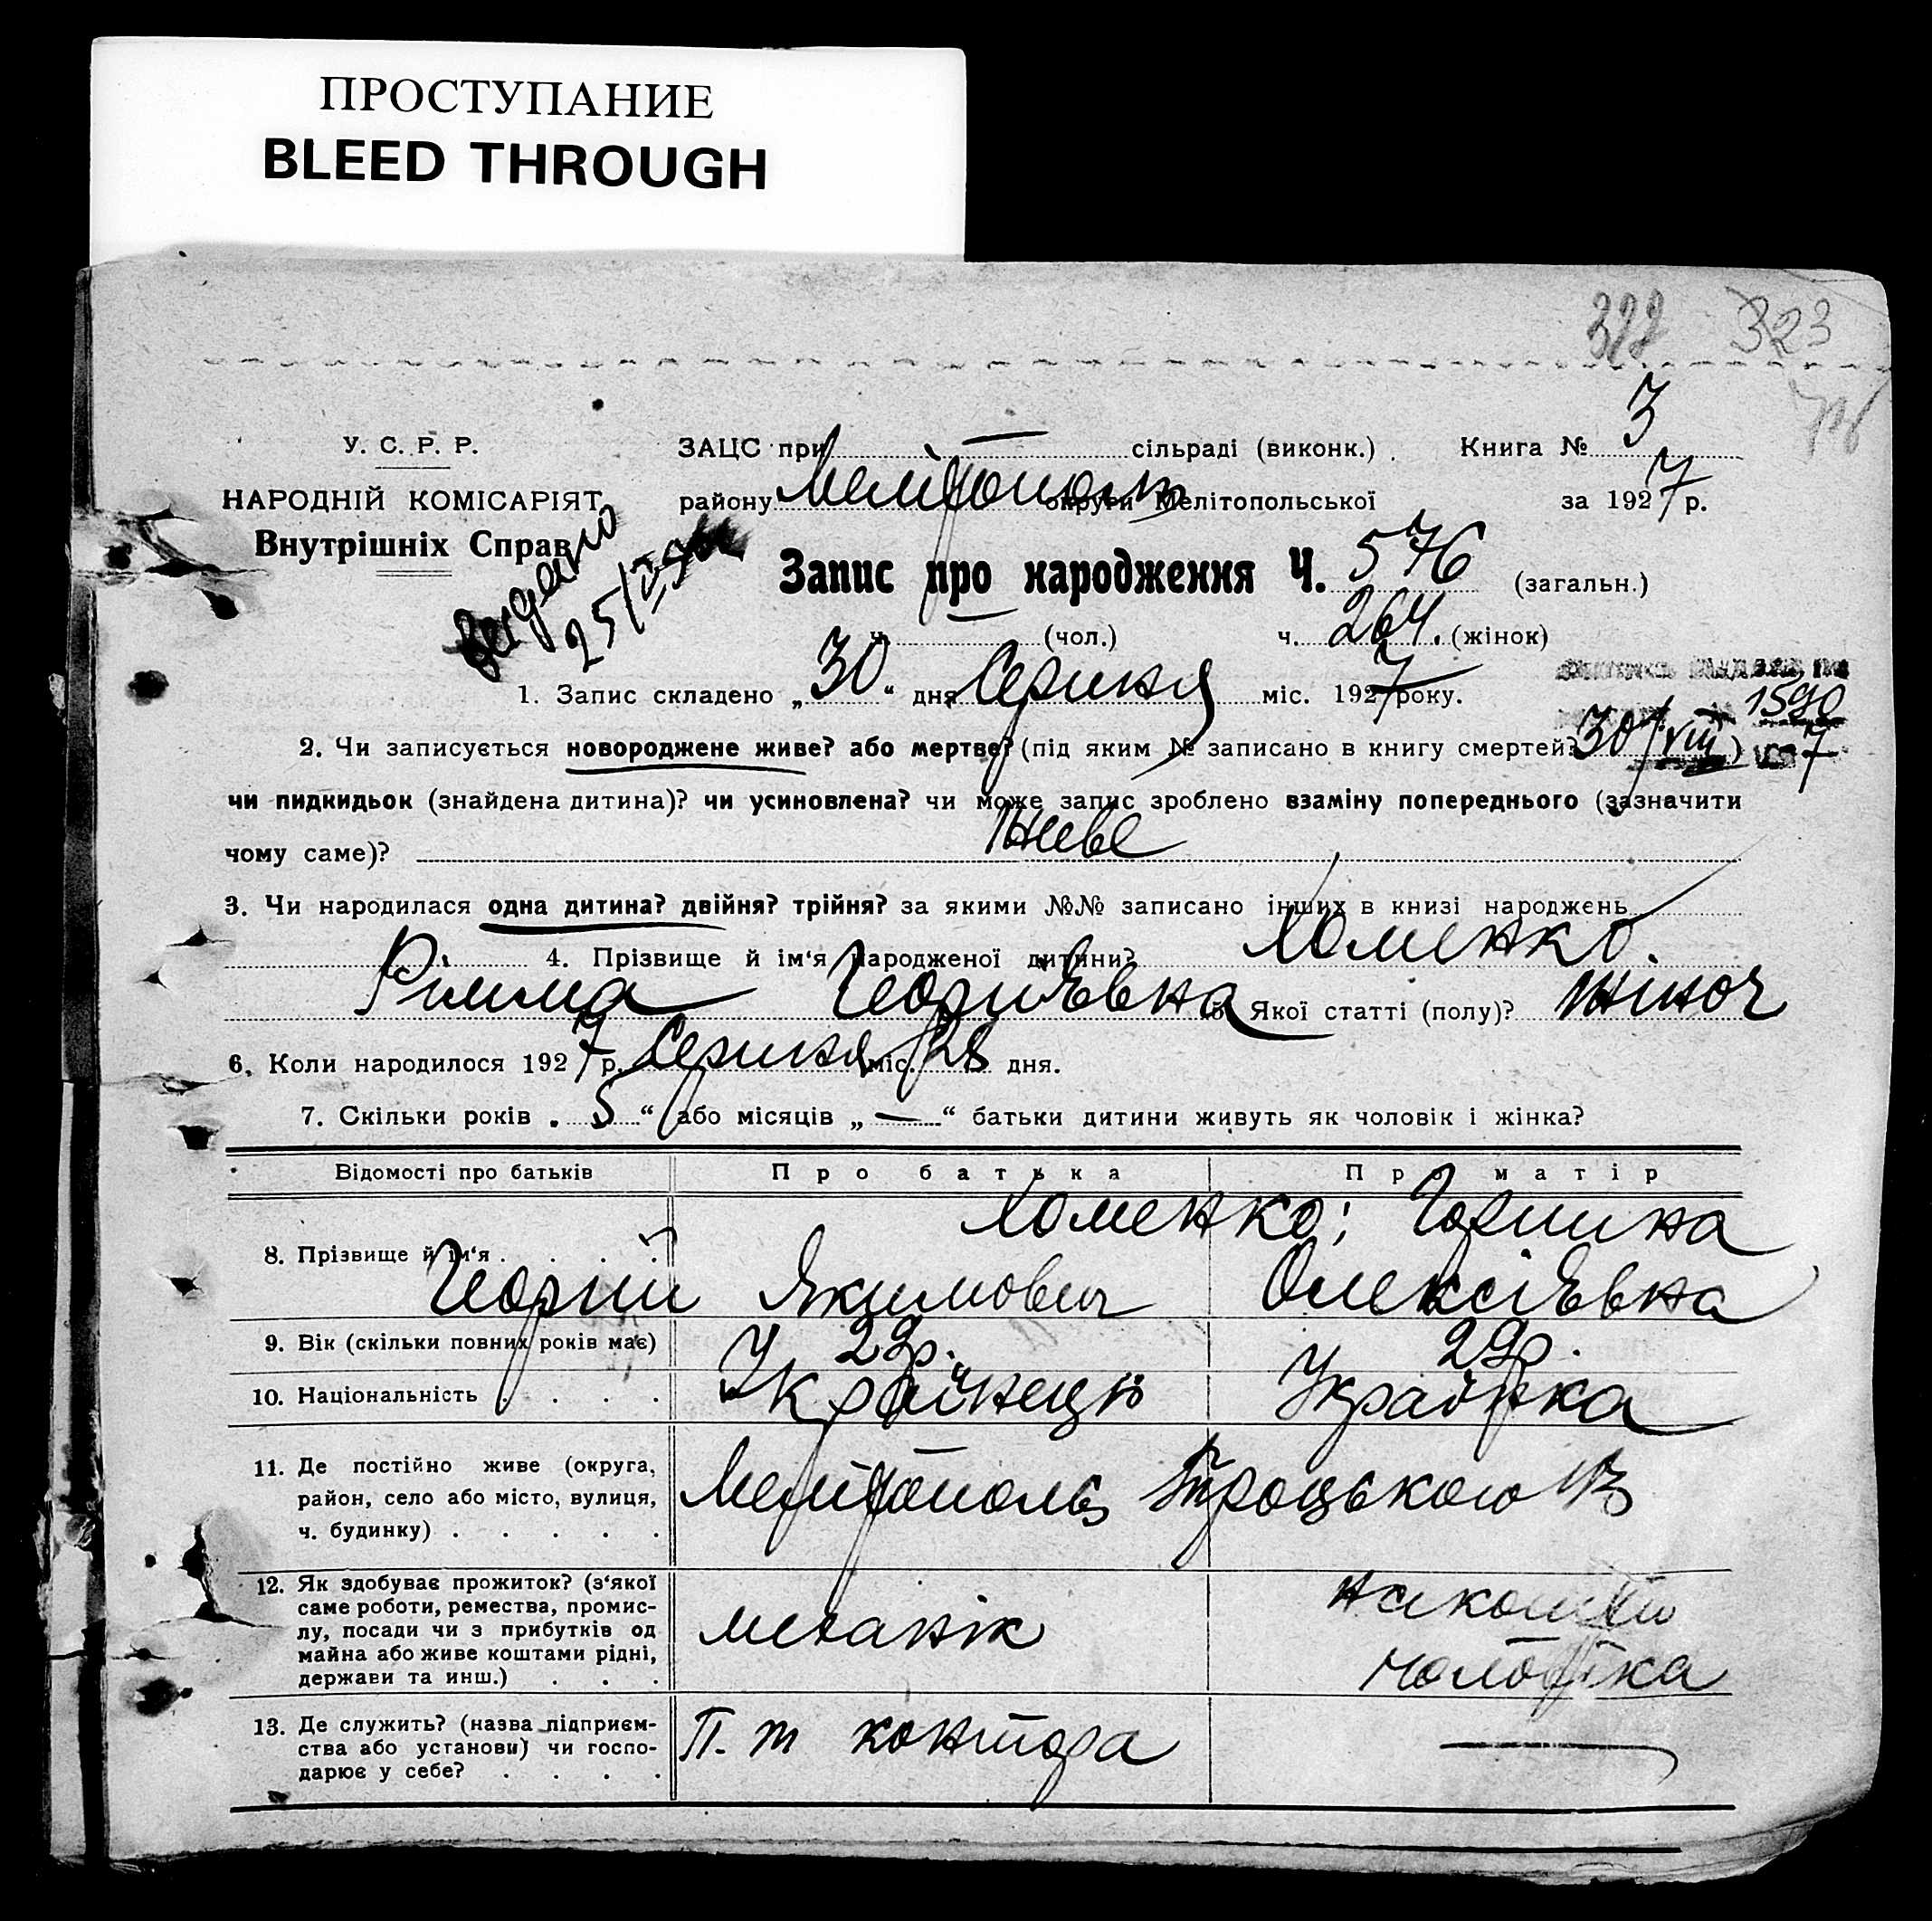 ПРОСТУПАНИЕ
BLEED THROUGH
322 323
У. С. Р. Р.
ЗАЦС при — сільраді (виконк.) Книга № 3
НАРОДНІЙ КОМІСАРІЯТ
району Мелітополь округи Мелітопольської за 1927 р.
Внутрішніх Справ
25/
Запис про народження Ч. 576 (загальн.)
ч. — (чол.) ч. 264. (жінок)
1. Запис складено „30“ дня Серпня міс. 1927 року.
1590
2. Чи записується новороджене живе? або мертве? (під яким № записано в книгу смертей? ) 30/VIII 7
чи пидкидьок (знайдена дитина)? чи усиновлена? чи може запис зроблено взаміну попереднього (зазначити
чому саме)? Живе
3. Чи народилася одна дитина? двійня? трійня? за якими №№ записано інших в книзі народжень
4. Прізвище й ім‘я народженої дитини? Хоменко.
Рімма Георгіевна 5. Якої статті (полу)? жіноч
6. Коли народилося 1927 р. Серпня міс. 28 дня.
7. Скільки років „5“ або місяців „—“ батьки дитини живуть як чоловік і жінка?
Відомості про батьків Про батька Про матір
Хоменко; Горпина
8. Прізвище й ім‘я . . . .
Георгій Якимович Олексіевна
9. Вік (скільки повних років має) 29р. 29р.
10. Національність . . . . Українець Українка
11. Де постійно живе (округа,
район, село або місто, вулиця,
ч. будинку) . . . . .
Мелітополь Троцького 13
12. Як здобуває прожиток? (з‘якої
саме роботи, ремества, промис-
лу, посади чи з прибутків од
майна або живе коштами рідні,
держави та инш.) . . .
механік
на кошти
чоловіка
13. Де служить? (назва підприєм-
ства або установи) чи госпо-
дарює у себе? . . . .
П. т контора —